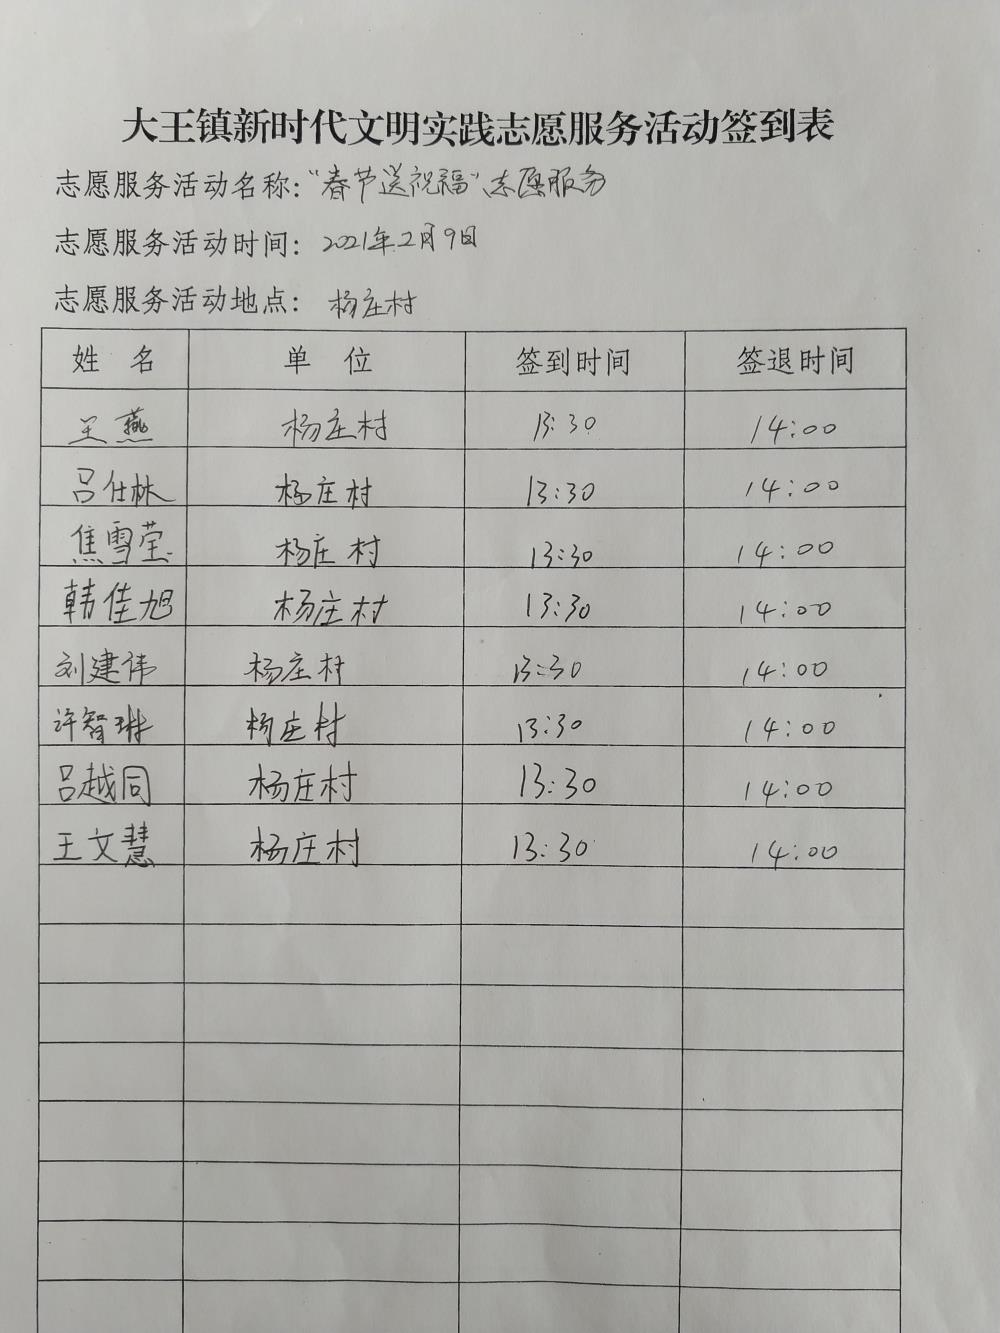 大王镇新时代文明实践志愿服务活动签到表
志愿服务活动名称：“春节送祝福”志愿服务
志愿服务活动时间：2021年2月9日
志愿服务活动地点：杨庄村
姓 名 单 位 签到时间 签退时间
王燕 杨庄村 13:30 14:00
吕仕林 杨庄村 13:30 14:00
焦雪莹 杨庄村 13:30 14:00
韩佳旭 杨庄村 13:30 14:00
刘建伟 杨庄村 13:30 14:00
许智琳 杨庄村 13:30 14:00
吕越同 杨庄村 13:30 14:00
王文慧 杨庄村 13:30 14:00